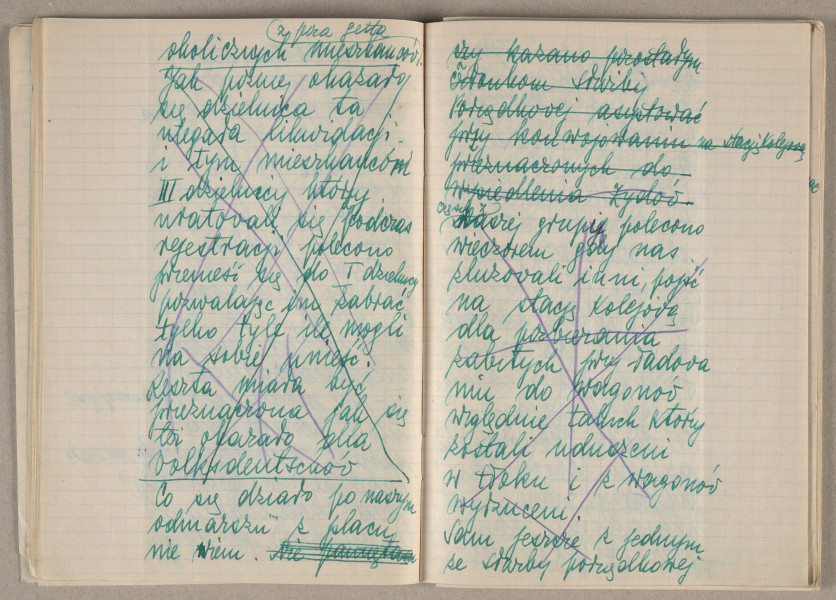 z poza getta
okolicznych mieszkańców.
Jak później okazało
się dzielnica ta
ulegała likwidacji
i tym mieszkańcom
III dzielnicy którzy
uratowali się podczas
rejestracji polecono
przenieść się do I dzielnicy
pozwalając im zabrać
tylko tyle ile mogli
na sobie unieść.
Reszta miała być
przeznaczona jak się
też okazało dla
Volksdeutschów
Co się działo po naszym
odmarszu z placu
nie wiem. nie pamiętam
czy kazano pozostałym
członkom służby
Porządkowej asystować
przy konwojowaniu na stację kolejową
przeznaczonych do
wysiedlenia Żydów.
części
naszej grupy polecono
wieczorem gdy nas
zluzowali inni, pójść
na stację kolejową
dla pozbierania
zabitych przy ładowa
niu do wagonów
względnie takich którzy
zostali uduszeni
w tłoku i z wagonów
wyrzuceni.
Sam jeszcze z jednym
ze służby porządkowej